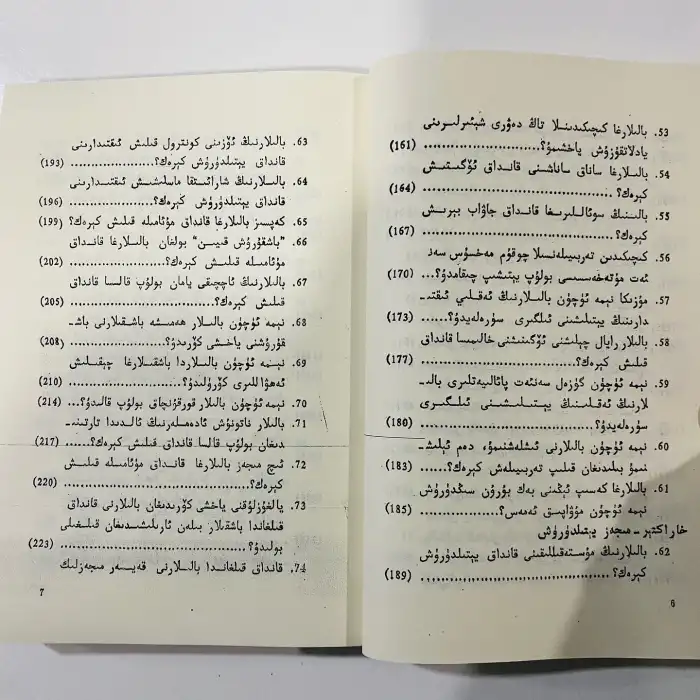 53. بالىلارغا كىچىكىدىنلا تاڭ دەۋرى شېئىرلىرىنى
يادلاتقۇزۇش ياخشىمۇ؟............ (161)
54. بالىلارغا ساناق ساناشنى قانداق ئۆگىتىش
كېرەك؟............................ (164)
55. بالىنىڭ سوئاللىرىغا قانداق جاۋاب بېرىش
كېرەك؟............................ (167)
56. كىچىكىدىن تەربىيىلەنسىلا چوقۇم مەخسۇس سەن
ئەت مۇتەخەسسىسى بولۇپ يېتىشىپ چىقامدۇ؟... (170)
57. مۇزىكا نېمە ئۈچۈن بالىلارنىڭ ئەقلىي ئىقتى-
دارىنىڭ يېتىلىشىنى ئىلگىرى سۈرەلەيدۇ؟... (173)
58. بالىلار رايال چېلىشنى ئۆگىنىشنى خالىمىسا قانداق
قىلىش كېرەك؟...................... (177)
59. نېمە ئۈچۈن گۈزەل سەنئەت پائالىيەتلىرى بالى-
لارنىڭ ئەقلىنىڭ يېتىلىشىنى ئىلگىرى
سۈرەلەيدۇ؟........................ (180)
60. نېمە ئۈچۈن بالىلارنى ئىشلەشنىمۇ، دەم ئېلىش-
نىمۇ بىلىدىغان قىلىپ تەربىيىلەش كېرەك؟...... (183)
61. بالىلارغا كەسىپ ئېڭىنى بەك بۇرۇن سىڭدۈرۈش
نېمە ئۈچۈن مۇۋاپىق ئەمەس؟......... (185)
خاراكتېر - مىجەز يېتىلدۈرۈش
62. بالىلارنىڭ مۇستەقىللىقىنى قانداق يېتىلدۈرۈش
كېرەك؟............................ (189)
6
63. بالىلارنىڭ ئۆزىنى كونترول قىلىش ئىقتىدارىنى
قانداق يېتىلدۈرۈش كېرەك؟............ (193)
64. بالىلارنىڭ شارائىتقا ماسلىشىش ئىقتىدارىنى
قانداق يېتىلدۈرۈش كېرەك؟............ (196)
65. گەپسىز بالىلارغا قانداق مۇئامىلە قىلىش كېرەك؟ (199)
66. «باشقۇرۇش قىيىن» بولغان بالىلارغا قانداق
مۇئامىلە قىلىش كېرەك؟............... (202)
67. بالىلارنىڭ ئاچچىقى يامان بولۇپ قالسا قانداق
قىلىش كېرەك؟...................... (205)
68. نېمە ئۈچۈن بالىلار ھەمىشە باشقىلارنى باش-
قۇرۇشنى ياخشى كۆرىدۇ؟............ (208)
69. نېمە ئۈچۈن بالىلاردا باشقىلارغا چېقىلىش
ئەھۋاللىرى كۆرۈلىدۇ؟............... (210)
70. نېمە ئۈچۈن بالىلار قورقۇنچاق بولۇپ قالىدۇ؟... (214)
71. بالىلار ناتونۇش ئادەملەرنىڭ ئالدىدا تارتىنى-
دىغان بولۇپ قالسا قانداق قىلىش كېرەك؟...... (217)
72. ئىچ مىجەز بالىلارغا قانداق مۇئامىلە قىلىش
كېرەك؟............................ (220)
73. يالغۇزلۇقنى ياخشى كۆرىدىغان بالىلارنى قانداق
قىلغاندا باشقىلار بىلەن ئارىلىشىدىغان قىلغىلى
بولىدۇ؟............................ (223)
74. قانداق قىلغاندا بالىلارنى قەيسەر مىجەزلىك
7